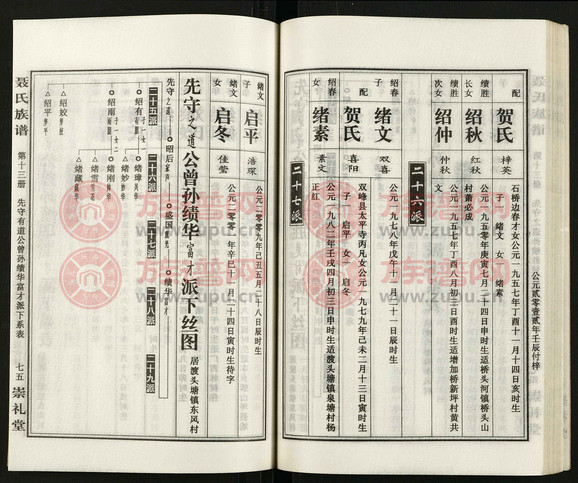 公元贰零壹贰年壬辰付梓
配
贺氏 梓英
石桥边春才女公元一九五七年丁酉十一月十四日亥时生
子 绪文 女 绪素
绩胜
长女
绍秋 红秋
公元一九五〇年庚寅七月二十四日寅时生适桥头河镇桥头山
村萧必成
绩胜
次女
绍仲 仲秋
公元一九五七年丁酉八月初三日酉时生适增加桥新坪村黄共
文
二十六派
绍春
子
绪文 双喜
公元一九七八年戊午十一月
配
贺氏 喜阳
双峰县太平寺丙凡女公元一九七九年己未二月十三日寅时生
子 启平 女 启冬
绍春
女
绪素 素文
公元一九八二年壬戌四月初三日申时生适渡头塘镇泉塘村杨
正红
二十七派
绪文
子
启平 浩琛
公元二〇〇九年己丑五月二十八日辰时生
绪文
女
启冬 佳莺
公元二〇〇一年辛巳十一月二十四日寅时生待字
先守之道公曾孙绩华富才派下丝图
居渡头塘镇东风村
先守之道
昭后
盛国
绩华
二十五派
二十六派
二十七派
二十八派
二十九派
绍有
绍南
绍刚
绪璋
绪妙
绪刚
绪雪
绪葳
绍姣
绍平
聂氏族谱
第十三册
先守有道公曾孙绩华富才派下系表
七五
崇礼堂
族谱网